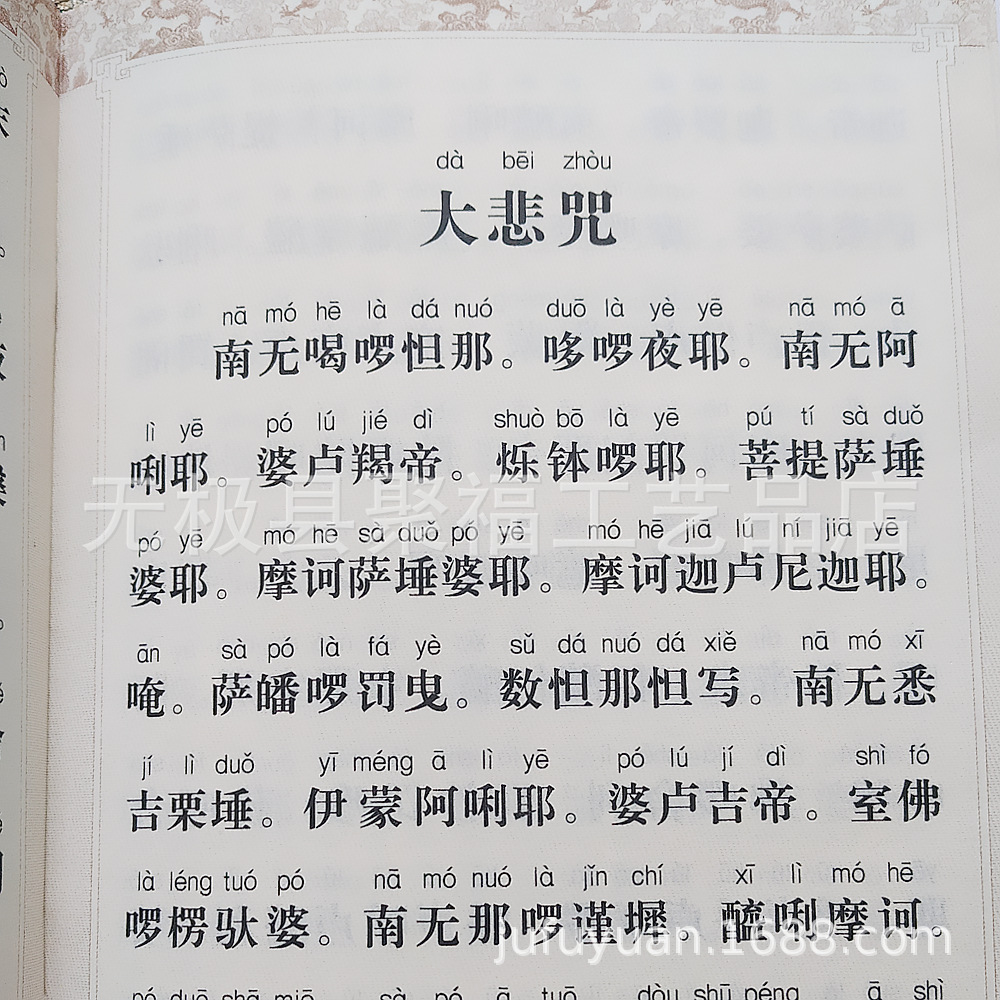 dà bēi zhòu
大悲咒
nā mó hē là dá nuó duō là yè yē nā mó ā
南无喝啰怛那。哆啰夜耶。南无阿
lì yē pó lú jié dì shuò bō là yē pú tí sà duǒ
唎耶。婆卢羯帝。烁钵啰耶。菩提萨埵
无极县聚福工艺品店
pó yē mó hē sà duǒ pó yē mó hē jiā lú ní jiā yē
婆耶。摩诃萨埵婆耶。摩诃迦卢尼迦耶。
ān sà pó là fá yè sǔ dá nuó dá xiě nā mó xī
唵。萨皤啰罚曳。数怛那怛写。南无悉
jí lì duǒ yī méng ā lì yē pó lú jí dì shì fó
吉栗埵。伊蒙阿唎耶。婆卢吉帝。室佛
là léng tuó pó nā mó nuó là jǐn chí xī lì mó hē
啰楞驮婆。南无那啰谨墀。醯唎摩诃。
jufuyuan.1688.com
pó duō shā miē sà pó ā tuō dòu shū péng ā shì